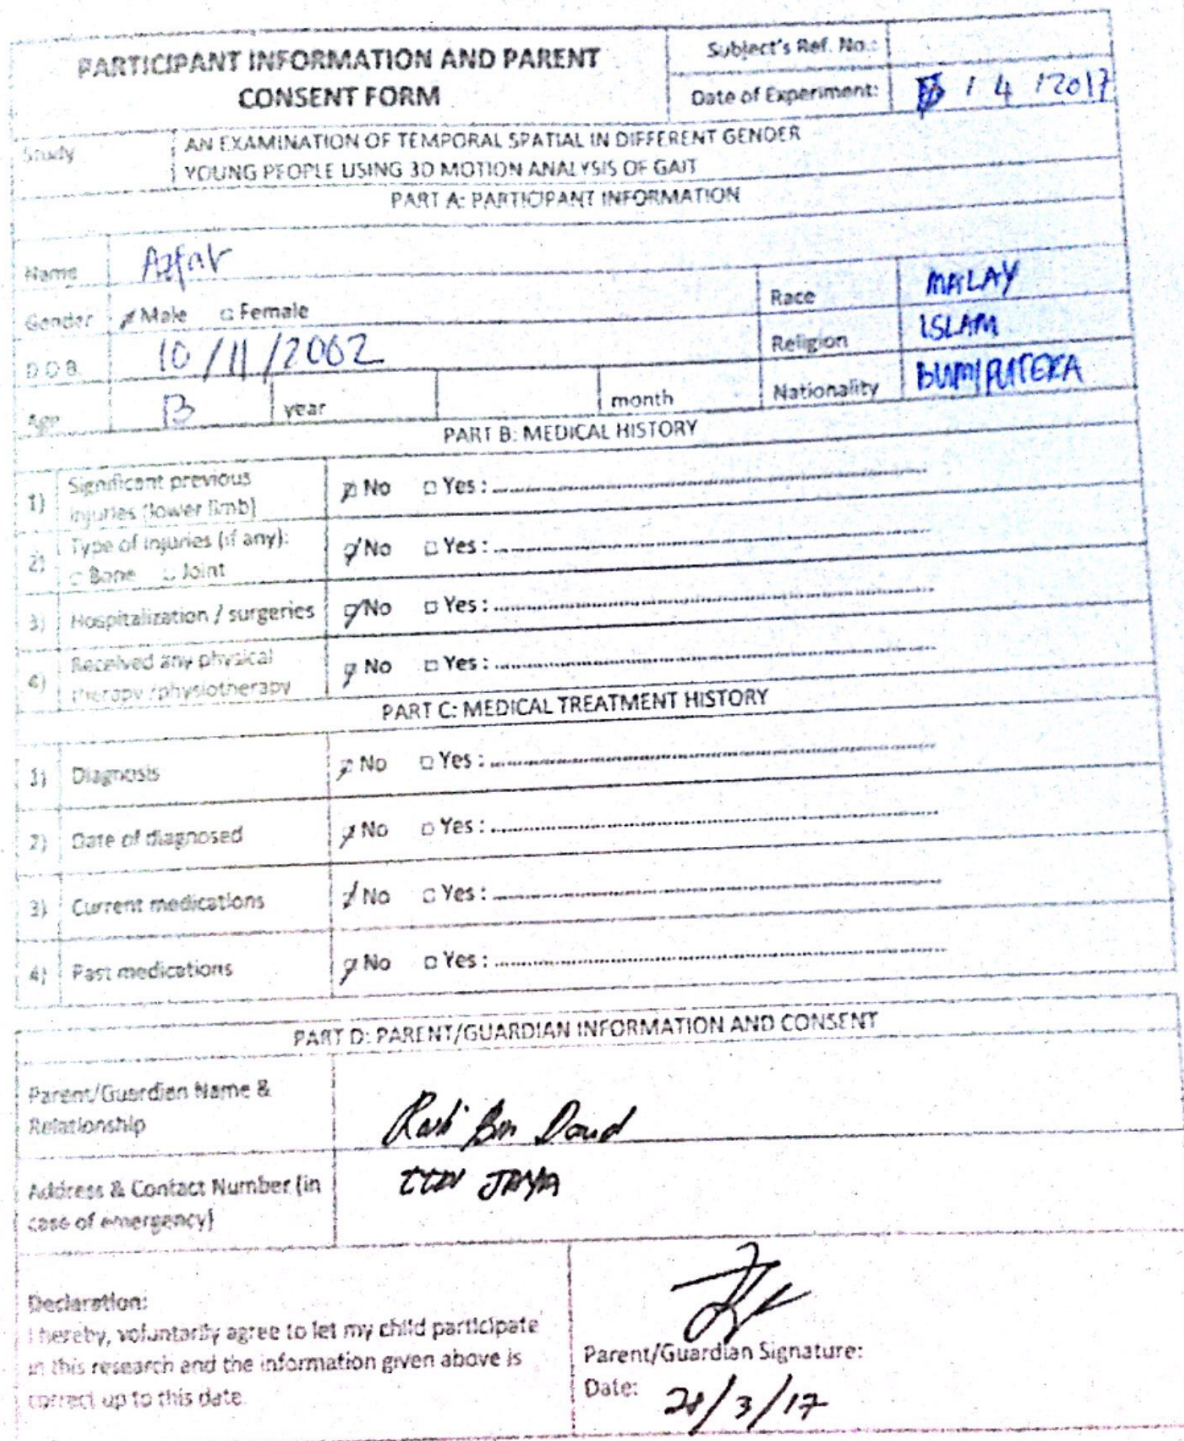 PARTICIPANT INFORMATION AND PARENT
CONSENT FORM
Subject's Ref. No.:
Date of Experiment: / 4 / 2017
Study
AN EXAMINATION OF TEMPORAL SPATIAL IN DIFFERENT GENDER
YOUNG PEOPLE USING 3D MOTION ANALYSIS OF GAIT
PART A: PARTICIPANT INFORMATION
Name Azfar
Gender Male Female
Race MALAY
D.O.B. 10/11/2002
Religion ISLAM
Age 13 year month
Nationality BUMIPUTERA
PART B: MEDICAL HISTORY
1) Significant previous
injuries (lower limb)
No Yes :
2) Type of injuries (if any):
Bone Joint
No Yes :
3) Hospitalization / surgeries No Yes :
4) Received any physical
therapy /physiotherapy
No Yes :
PART C: MEDICAL TREATMENT HISTORY
1) Diagnosis No Yes :
2) Date of diagnosed No Yes :
3) Current medications No Yes :
4) Past medications No Yes :
PART D: PARENT/GUARDIAN INFORMATION AND CONSENT
Parent/Guardian Name &
Relationship
Bin Daud
Address & Contact Number (in
case of emergency)
JAYA
Declaration:
I hereby, voluntarily agree to let my child participate
in this research and the information given above is
correct up to this date.
Parent/Guardian Signature:
Date: 28/3/17